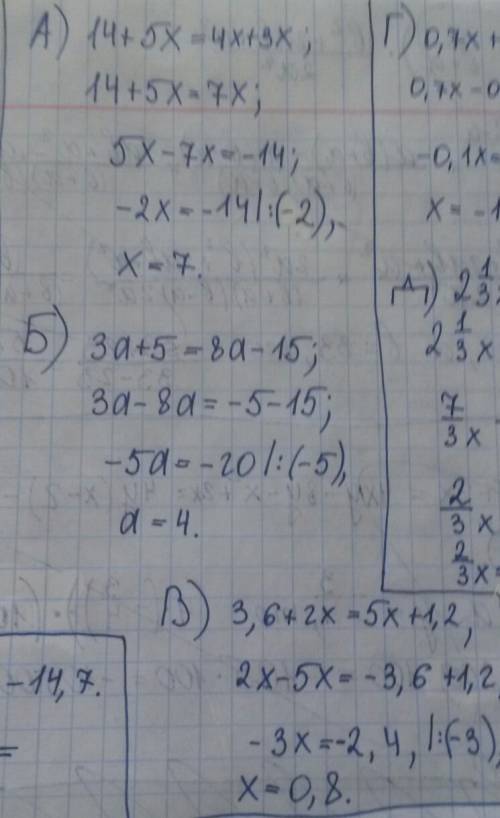 А) 14+5x=4x+3x;
14+5x=7x;
5x-7x=-14;
-2x=-14|:(-2),
x=7.
Б) 3a+5=8a-15;
3a-8a=-5-15;
-5a=-20|:(-5),
a=4.
В) 3,6+2x=5x+1,2,
2x-5x=-3,6+1,2,
-3x=-2,4,|:(-3),
x=0,8.
-14,7.
=
Г) 0,7x+
0,7x-0
-0,1x=
x=-1
Д) 2 1/3
2 1/3 x
7/3 x
2/3 x
2/3 x=